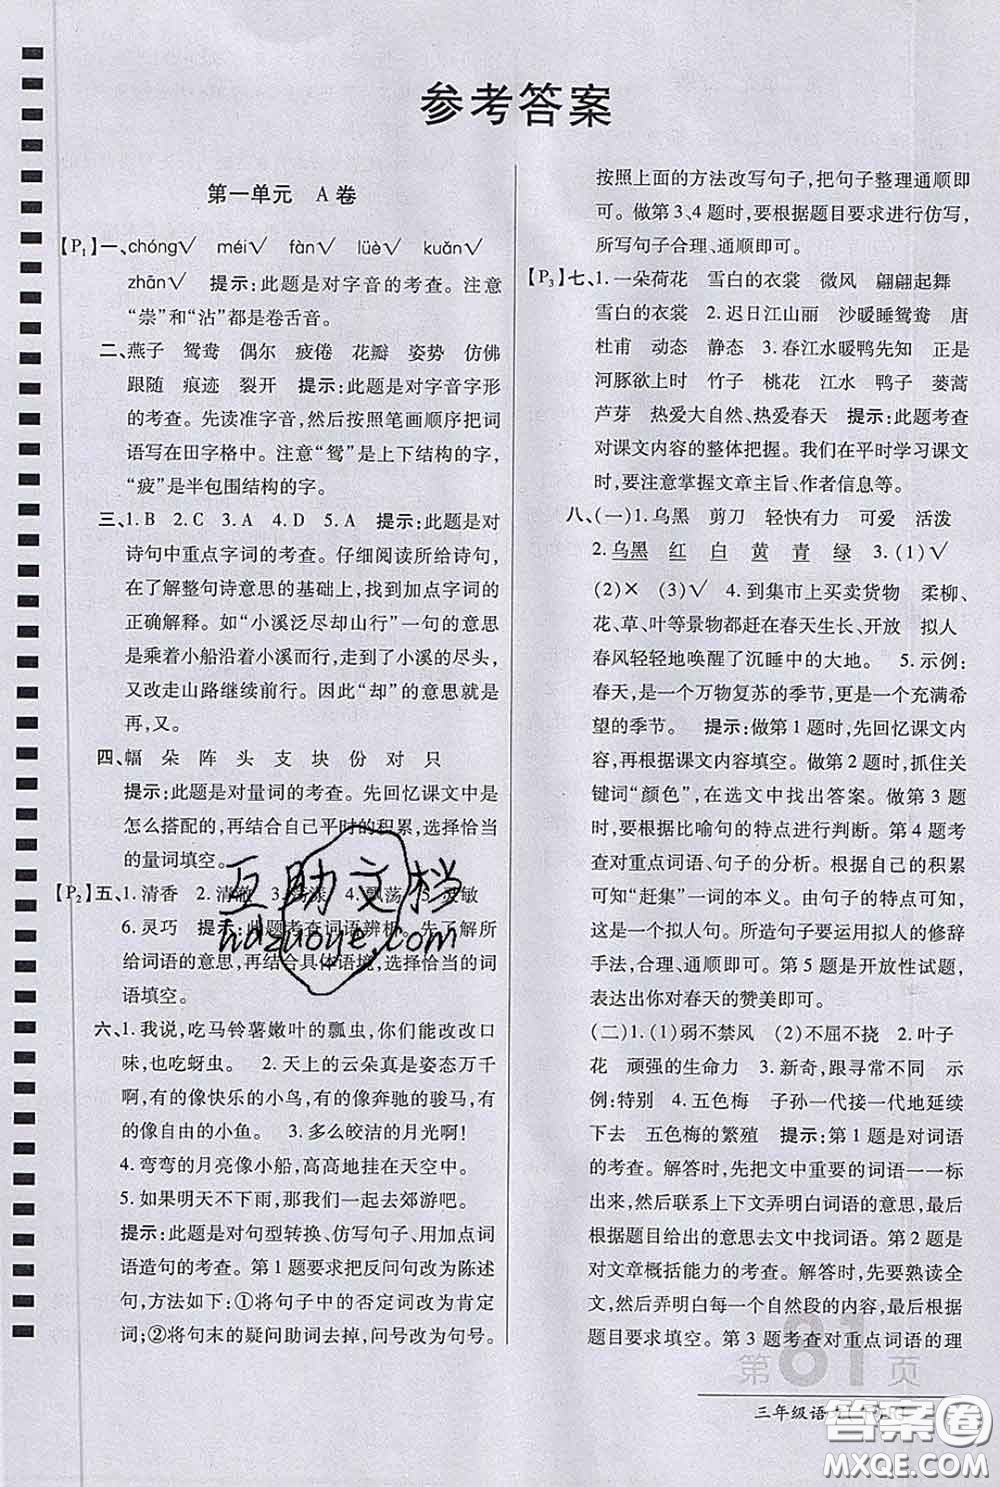 参考答案
第一单元　A卷
【P₁】一、chóng√　méi√　fàn√　lüè√　kuǎn√
zhān√　提示:此题是对字音的考查。注意
“崇”和“沾”都是卷舌音。
二、燕子　鸳鸯　偶尔　疲倦　花瓣　姿势　仿佛
跟随　痕迹　裂开　提示:此题是对字音字形
的考查。先读准字音,然后按照笔画顺序把词
语写在田字格中。注意“鸳”是上下结构的字,
“疲”是半包围结构的字。
三、1.B　2.C　3.A　4.D　5.A　提示:此题是对
诗句中重点字词的考查。仔细阅读所给诗句,
在了解整句诗意思的基础上,找到加点字词的
正确解释。如“小溪泛尽却山行”一句的意思
是乘着小船沿着小溪而行,走到了小溪的尽头,
又改走山路继续前行。因此“却”的意思就是
再,又。
四、幅　朵　阵　头　支　块　份　对　只
提示:此题是对量词的考查。先回忆课文中是
怎么搭配的,再结合自己平时的积累,选择恰当
的量词填空。
【P₂】五、1.清香　2.清澈　3.荡漾　4.飘荡　5.灵敏
6.灵巧　提示:此题考查词语辨析。先了解所
给词语的意思,再结合具体语境,选择恰当的词
语填空。
六、1.我说,吃马铃薯嫩叶的瓢虫,你们能改改口
味,也吃蚜虫。　2.天上的云朵真是姿态万千
啊,有的像快乐的小鸟,有的像奔驰的骏马,有
的像自由的小鱼。　3.多么皎洁的月光啊!
4.弯弯的月亮像小船,高高地挂在天空中。
5.如果明天不下雨,那我们一起去郊游吧。
提示:此题是对句型转换、仿写句子、用加点词
语造句的考查。第1题要求把反问句改为陈述
句,方法如下:①将句子中的否定词改为肯定
词;②将句末的疑问助词去掉,问号改为句号。
按照上面的方法改写句子,把句子整理通顺即
可。做第3、4题时,要根据题目要求进行仿写,
所写句子合理、通顺即可。
【P₃】七、1.一朵荷花　雪白的衣裳　微风　翩翩起舞
雪白的衣裳　2.迟日江山丽　沙暖睡鸳鸯　唐
杜甫　动态　静态　3.春江水暖鸭先知　正是
河豚欲上时　竹子　桃花　江水　鸭子　蒌蒿
芦芽　热爱大自然、热爱春天　提示:此题考查
对课文内容的整体把握。我们在平时学习课文
时,要注意掌握文章主旨、作者信息等。
八、(一)1.乌黑　剪刀　轻快有力　可爱　活泼
2.乌黑　红　白　黄　青　绿　3.(1)√
(2)×　(3)√　4.到集市上买卖货物　柔柳、
花、草、叶等景物都赶在春天生长、开放　拟人
春风轻轻地唤醒了沉睡中的大地。　5.示例:
春天,是一个万物复苏的季节,更是一个充满希
望的季节。　提示:做第1题时,先回忆课文内
容,再根据课文内容填空。做第2题时,抓住关
键词“颜色”,在选文中找出答案。做第3题
时,根据比喻句的特点进行判断。第4题考
查对重点词语、句子的分析。根据自己的积累
可知“赶集”一词的本义。由句子的特点可知,
这是一个拟人句。所造句子要运用拟人的修辞
手法,合理、通顺即可。第5题是开放性试题,
表达出你对春天的赞美即可。
(二)1.(1)弱不禁风　(2)不屈不挠　2.叶子
花　顽强的生命力　3.新奇,异于寻常不同　示
例:特别　4.五色梅　子孙一代接一代地延续
下去　五色梅的繁殖　提示:第1题是对词语
的考查。解答时,先把文中重要的词语一一标
出来,然后联系上下文弄明白词语的意思,最后
根据题目给出的意思去文中找出词语。第2题是
对文章概括能力的考查。解答时,先要熟读全
文,然后弄明白每一个自然段的内容,最后根据
题目要求填空。第3题考查对重点词语的理
第81页
三年级语
互助文档
hdzuoye.com
答案圈
MXQE.COM